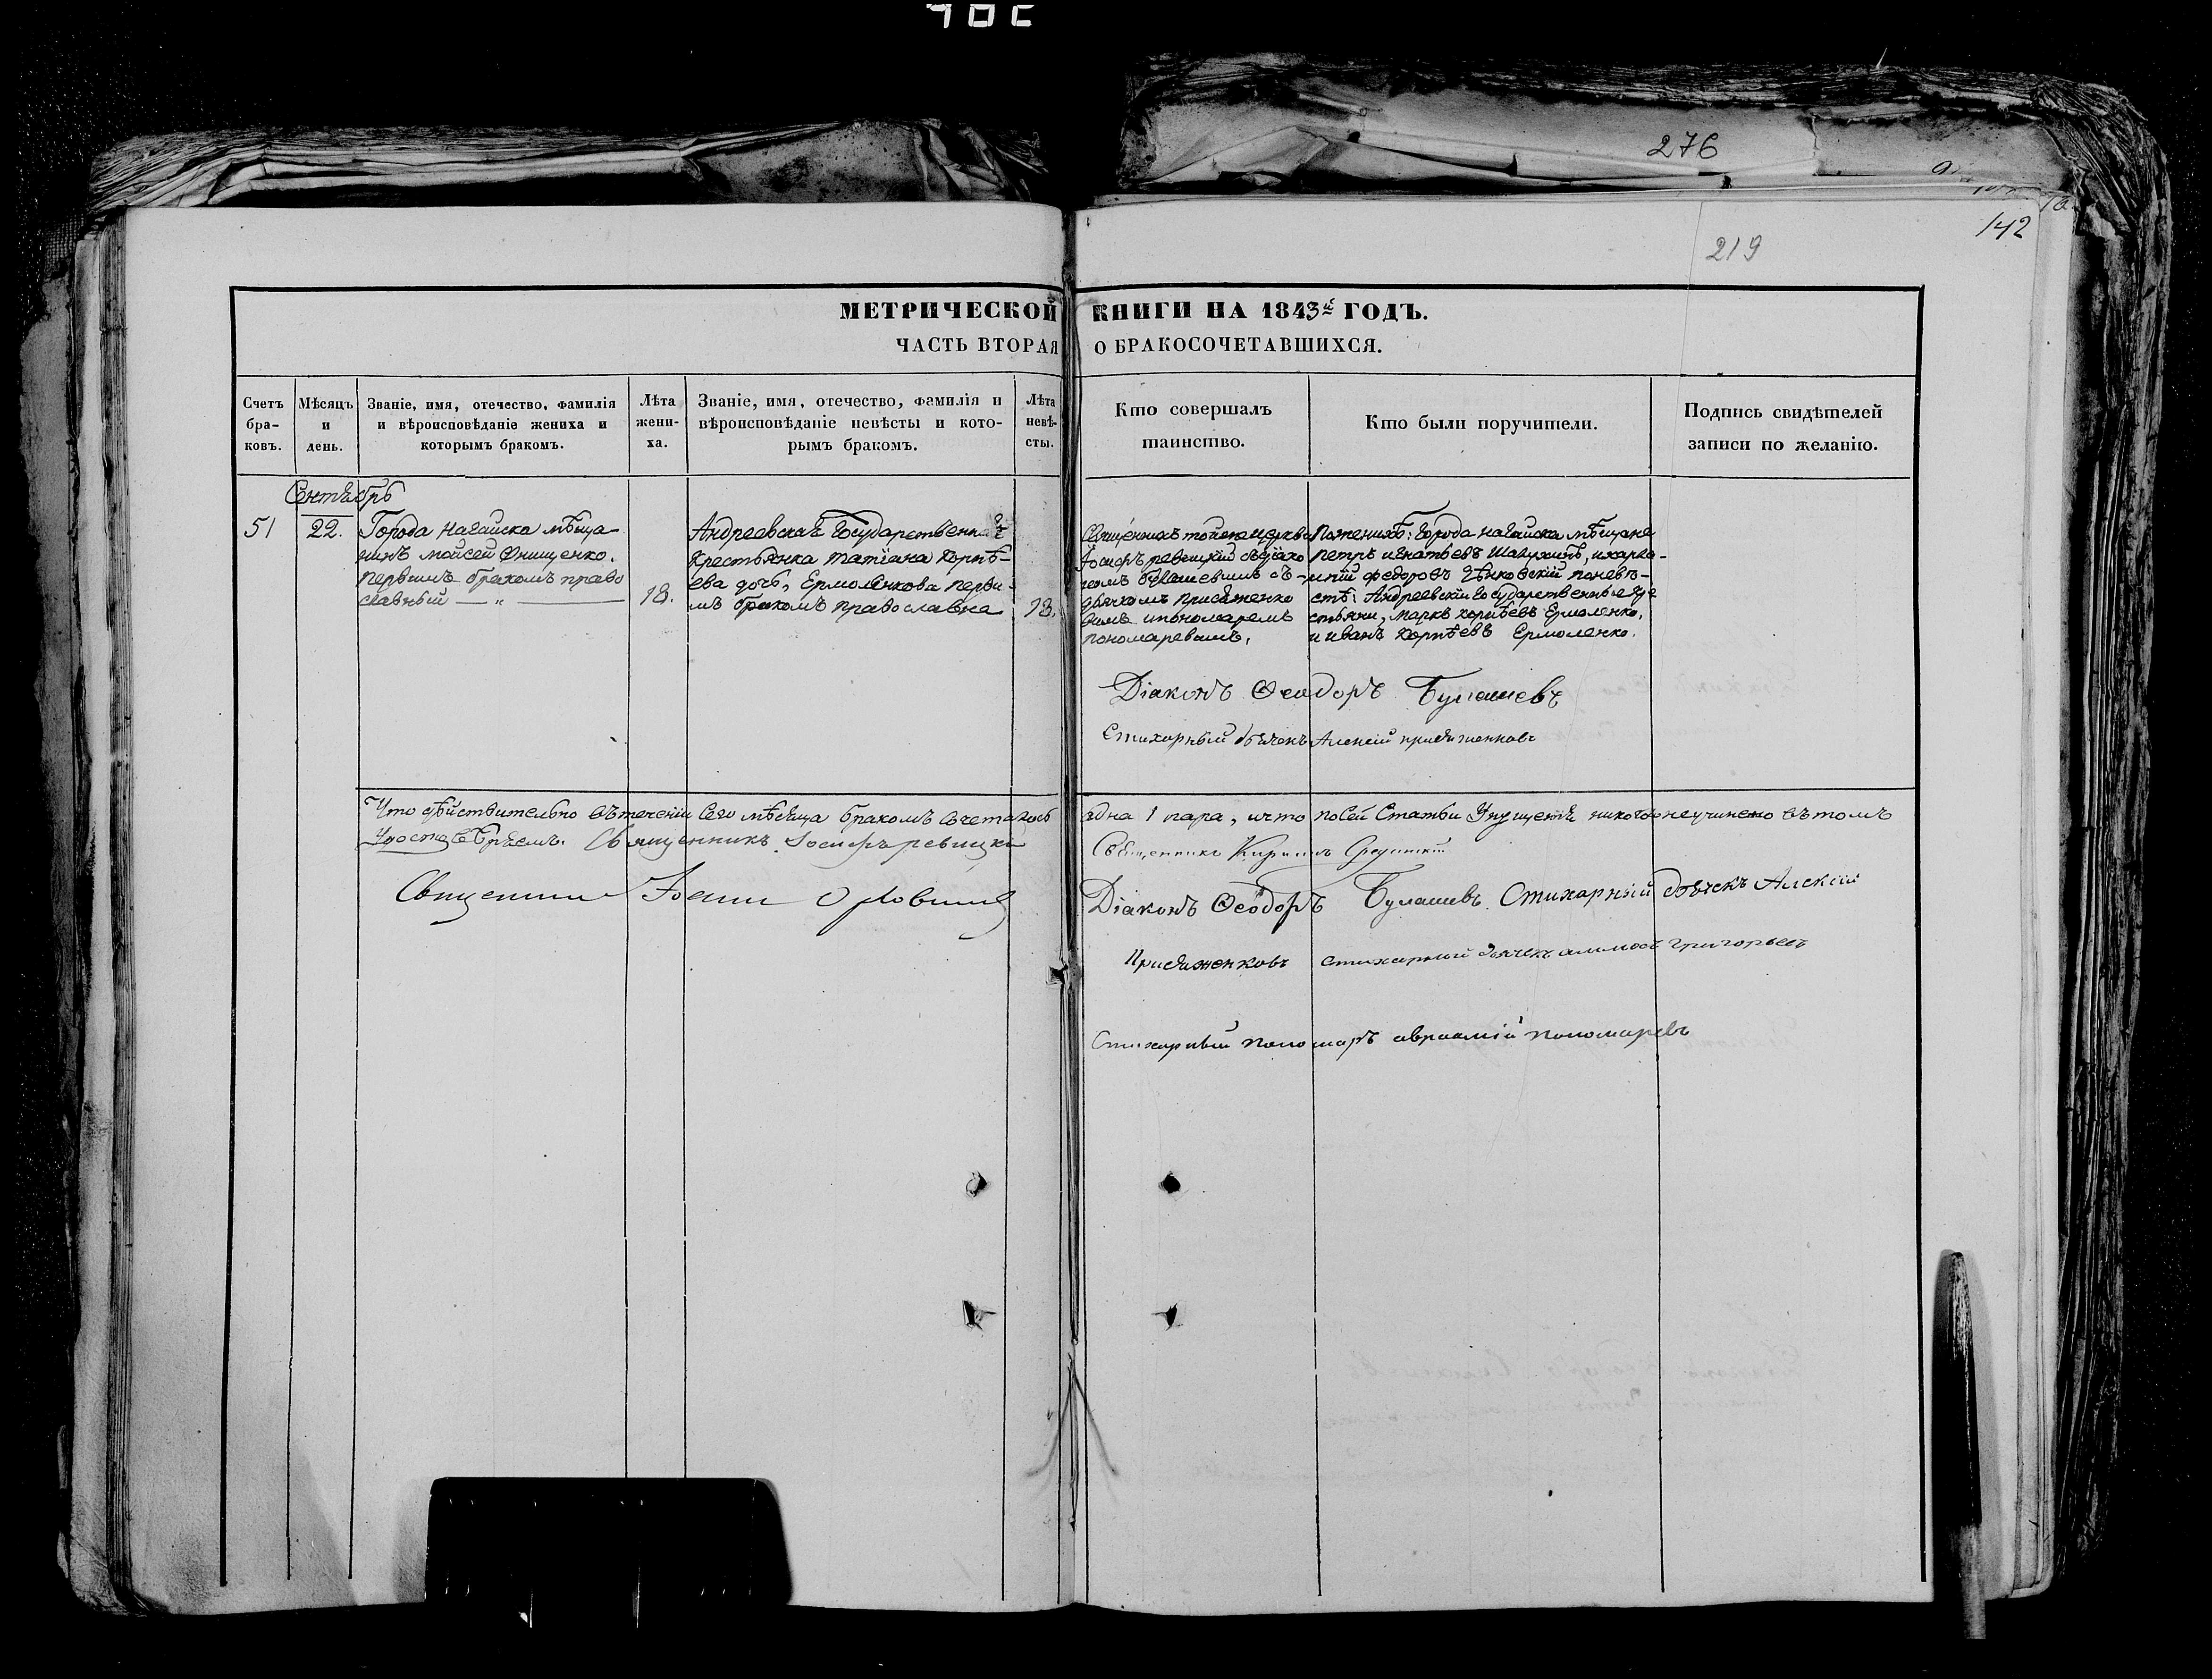 276
142
219
МЕТРИЧЕСКОЙ КНИГИ НА 1843й ГОДЪ.
ЧАСТЬ ВТОРАЯ О БРАКОСОЧЕТАВШИХСЯ.
Счетъ бра- ковъ.
Мѣсяцъ и день.
Званіе, имя, отечество, фамилія и вѣроисповѣданіе жениха и которымъ бракомъ.
Лѣта жени- ха.
Званіе, имя, отечество, фамилія и вѣроисповѣданіе невѣсты и кото- рымъ бракомъ.
Лѣта невѣ- сты.
Кто совершалъ таинство.
Кто были поручители.
Подпись свидѣтелей записи по желанію.
Сентябрь
51
22.
Города Нагайска мѣща-
нинъ мойсей Онищенко.
первымъ бракомъ право
славный — „ —
18.
Андреевская Государственная
Крестьянка Татіана Корнѣ-
ева дочь, Ермоленкова первы-
мъ бракомъ православна
18.
Священникъ тойже церкви
Іосифъ ревицкій съ діако
номъ Булашевымъ съ-
дьячкомъ присяженко
вымъ ипономаремъ
пономаревымъ.
Поженихѣ: Города нагайска мѣщане
петръ игнатьевъ
федоровъ поневѣ-
стѣ: Андреевскіи государственные кре
стьяни, маркъ корнѣевъ Ермоленко,
и иванъ корнѣевъ Ермоленко.
Діаконъ Ѳеодоръ Булашевъ
Стихарный дьячекъ Алексій присяженковъ
Что дѣйствительно въ теченіи Сего мѣсяца бракомъ сочеталось одна 1 пара, ичто посей Статьи Упущенія никогоонеучинено въ томъ
Удостовѣряемъ. Священникъ Іосифъ ревицкій Священникъ Кириллъ
Священникъ Іоаннъ Орловский Діаконъ Ѳеодоръ Булашевъ Стихарный дьячекъ Алексій
Присяженковъ стихарный дьячекъ григорьевъ
Стихарный пономарь авраамій пономаревъ